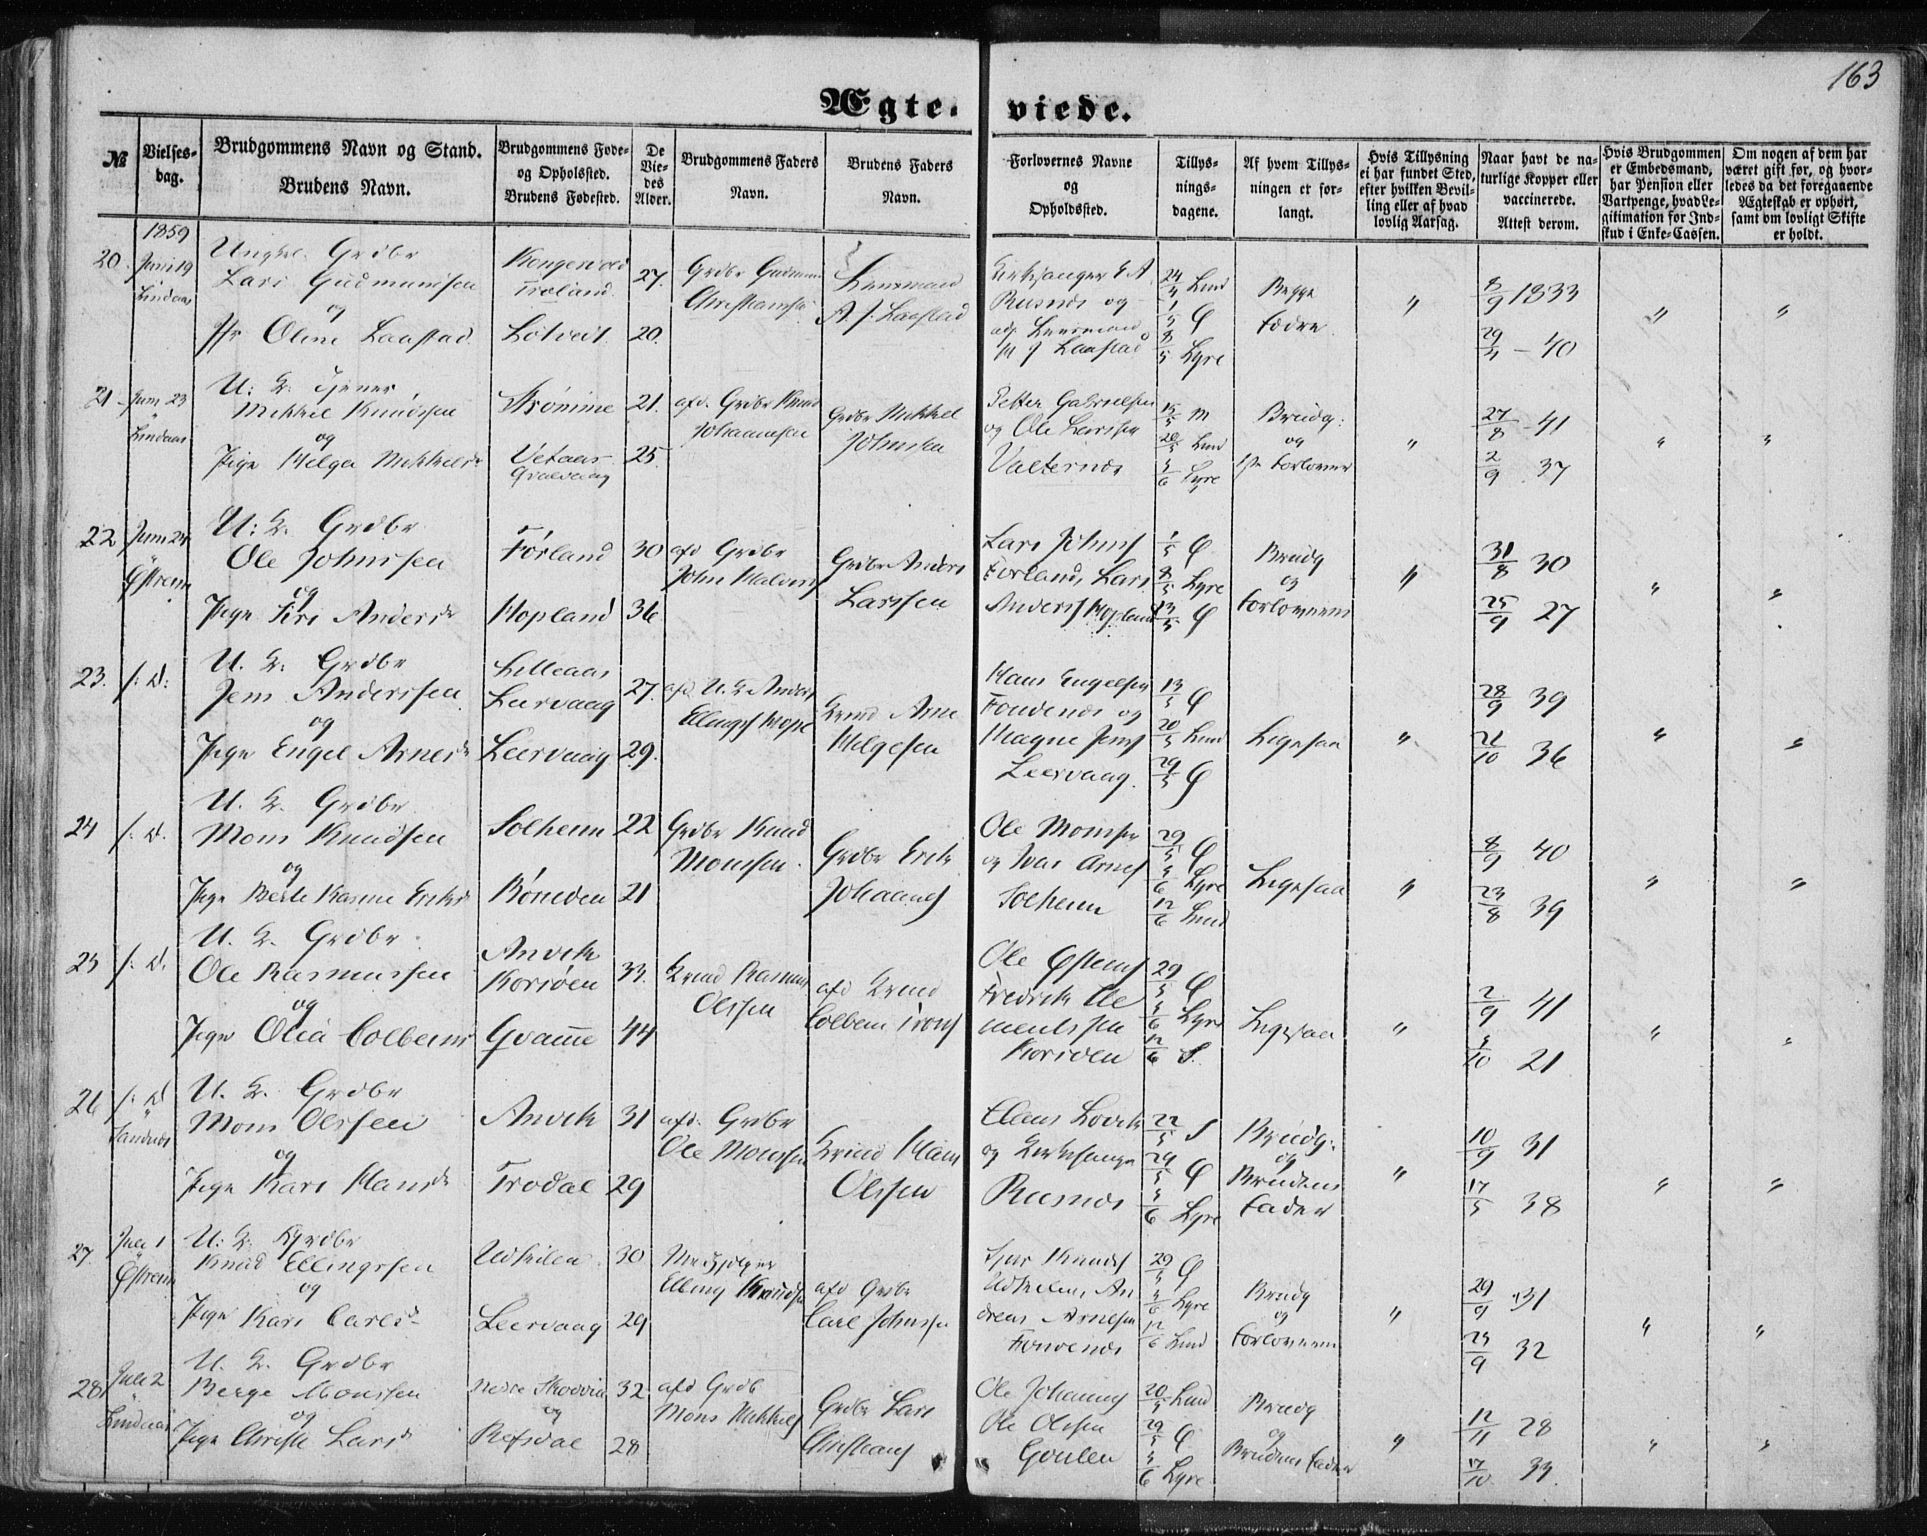 163
Ægte- viede.
№
Vielses-
dag.
Brudgommens Navn og Stand.
Brudens Navn.
Brudgommens Føde-
og Opholssted.
Brudens Fødested.
De
Vie-
des
Alder.
Brudgommens Faders
Navn.
Brudens Faders
Navn.
Forlovernes Navne
og
Opholdssted.
Tillys-
nings-
dagene.
Af hvem Tillys-
ningen er for-
langt.
Hvis Tillysning
ei har fundet Sted,
efter hvilken Bevil-
ling eller af hvad
lovlig Aarsag.
Naar havt de na-
turlige Kopper eller
vaccinerede.
Attest derom.
Hvis Brudgommen
er Embedsmand,
har Pension eller
Vartpenge, hvad Le-
gitimation for Ind-
skud i Enke-Cassen.
Om nogen af dem har
været gift før, og hvor-
ledes da det foregaaende
Ægteskab er ophørt,
samt om lovligt Skifte
er holdt.
1859
20. Juni 19
Lindaas
Ungk. Grdbr
Lars Gudmundsen
og
Jfr Oline Laastad
Lotveit
27.
20.
Grdbr
Lensmand
A. J. Laastad
Kirkesanger
Rusnes og
Lensmand
Laastad
24/4 Lind
1/5 Ø
8/5 Lyre
Begge
Fædre
"
8/9 1833
29/4 – 40
"
"
21 Juni 23
"
Lindaas
U: K: Tjener
Mikkel Knudssen
og
Pige Helga Mikkelsd
Strømme
21.
25.
afd. Grdbr Knud
Johannessen
Grdbr Mikkel
Johnssen
Petter Gabrielsen
og Ole Larssen
Valternes
15/5 M
20/5 Lind
5/6 Lyre
Brudg:
og
1ste Forlover
"
27/8 – 41
2/9 37
"
"
22 Juni 24
"
Østrem
U: K. Grdbr
Ole Johnssen
og
Pige Siri Andersd
Førland
Hopland
30
36
afd Grdbr
Grdbr Anders
Larssen
Lars Johns
Førland, Lars
Anders Hopland
1/5 Ø
8/5 Lyre
13/5 Ø
Brudg
og
Forloveren
"
31/8 30
25/9 27
"
"
23. /: D:
U. K. Grdbr
Jens Anderssen
og
Pige Engel Arnesd
Lilleaas
Leervaag
Leervaag
27.
29.
afd. U. K. Anders
Arne
Helgesen
Hans Engelsen
Fondenes og
Magne Jens
Leervaag.
13/5 Ø
20/5 Lind
29/5 Ø
Ligesaa
"
28/9 39
21/10 36
"
"
24 /: D.
U. K. Grdbr
Mons Knudsen
og
Pige Berte Karine Eriksd
Solheim
22
21
Grdbr Knud
Monssen.
Grdbr Erik
Johannes
Ole Monsen
og Ivar Arnes
Solheim
29/5 Ø
5/6 Lyre
12/6 Lind
Ligesaa
"
8/9 40
23/8 39
"
"
25 /: D.
U. K. Grdbr
Ole Rasmussen
og
Pige Olia Colbeins
Anvik
Korsøen
Qvamme
33.
44
Rasmus
Olssen
afd
Colbein
Ole Østens
Fredrik Cle
mentssen
Korsøen
29/5 Ø
5/6 Lyre
12/6 S.
Ligesaa
"
2/9 41
5/10 21
"
"
26 /: D
"
Sandnes
U. K. Grdbr
Mons Olssen
og
Pige Kari Hansd
Anvik
Trodal
31
29
afd. Grdbr
Ole Monssen
Hans
Olssen
og Kirkesanger
Rusnes
22/5 S
29/5 Ø
5/6 Lyre
Brudg:
og
Brudens
Fader
"
10/9 31
17/5 38
"
"
27. Juli 1
"
Østrem
U: K: Grdbr
Knud Ellingssen
og
Pige Kari Carlsd
Udkilen
Leervaag
30
29
Elling Knudsen
afd Grdbr
Carl Johnssen
Knuds
Udkilen, An
dreas Arnesen
Fondenes
29/5 Ø
5/6 Lyre
12/6 Lind
Brudg
og
Forloveren
"
29/9 31
24/9 32
"
"
28 Juli 2
"
Lindaas
U. K. Grdbr
Berge Monssen
og
Pige Christi Larsd
Refsdal
32
28
afd Grdb
Mons Mikkels
Grdbr Lars
Christians
Ole Johannes
Ole Olssen
Goulen
20/5 Lind
29/5 Ø
5/6 Lyre
Brudg
og
Brudens Fader
"
12/11 28
17/10 33
"
"